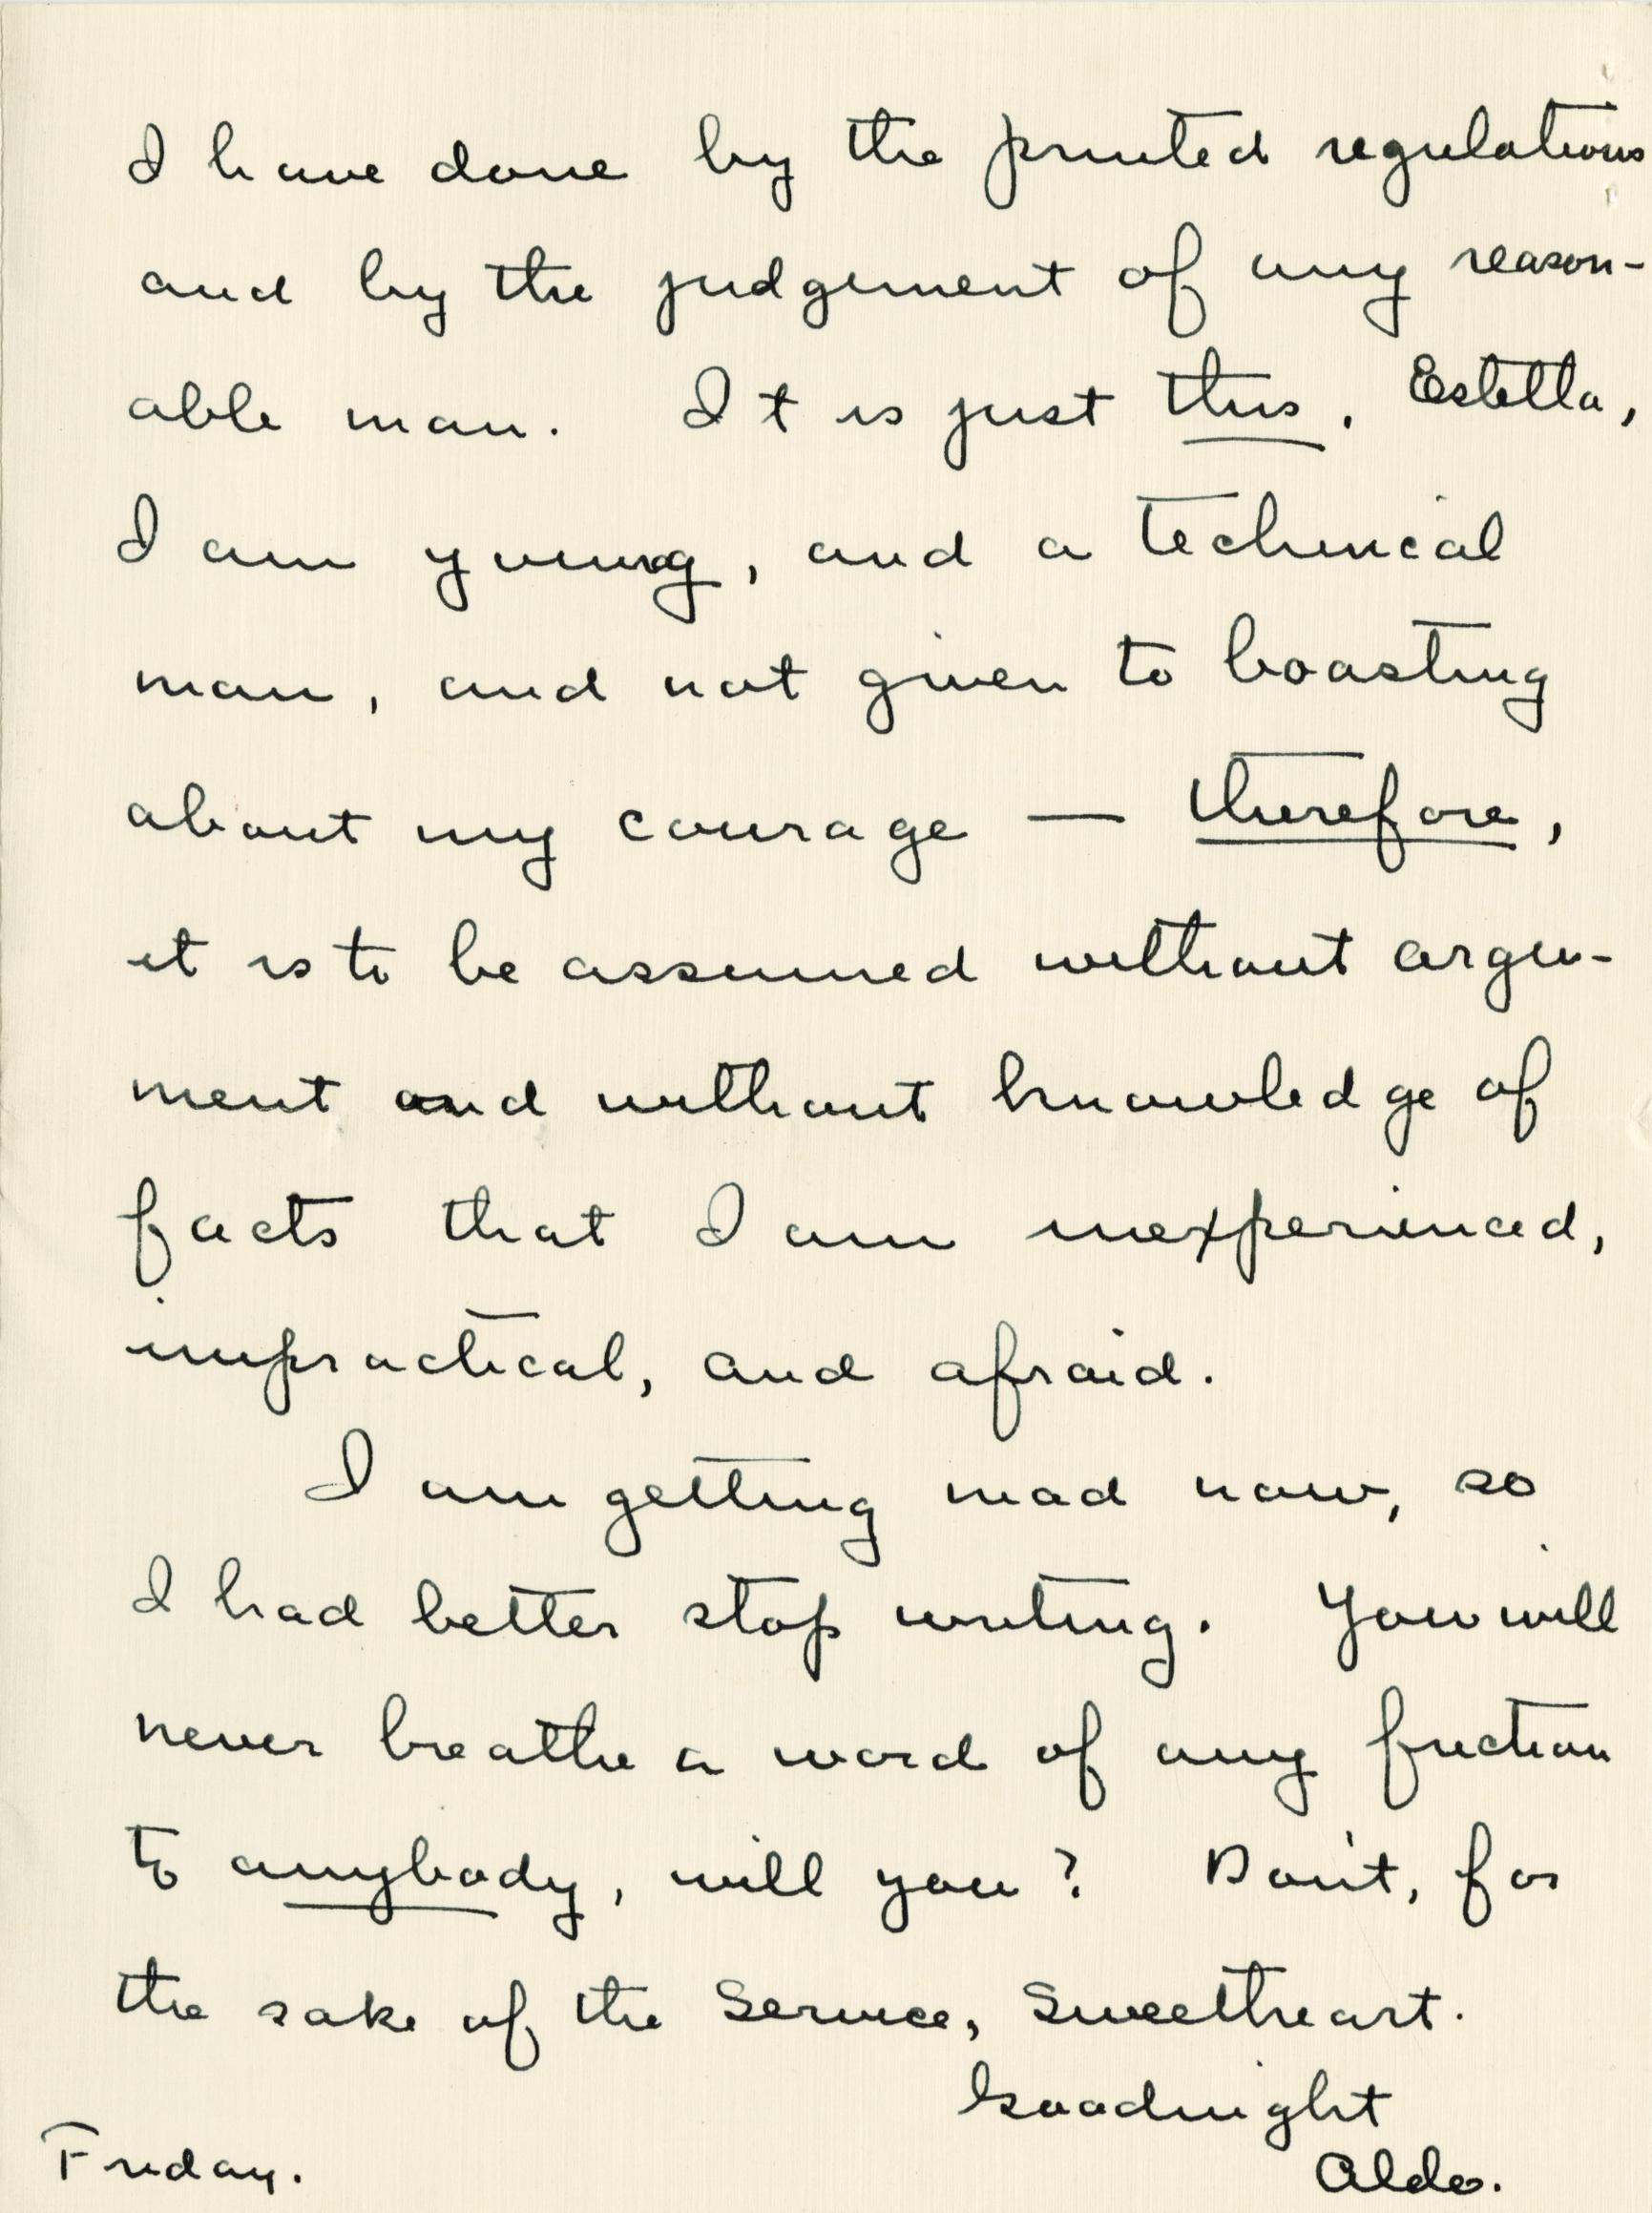 I have done by the printed regulations
and by the judgement of any reason-
able man. It is just this. Estella,
I am young, and a technical
man, and not given to boasting
about my courage — therefore,
it is to be assumed without argu-
ment and without knowledge of
facts that I am inexperienced,
impractical, and afraid.
I am getting mad now, so
I had better stop writing. You will
never breathe a word of any friction
to anybody, will you? Don't, for
the sake of the Service, Sweetheart.
Goodnight
Friday.
Aldo.